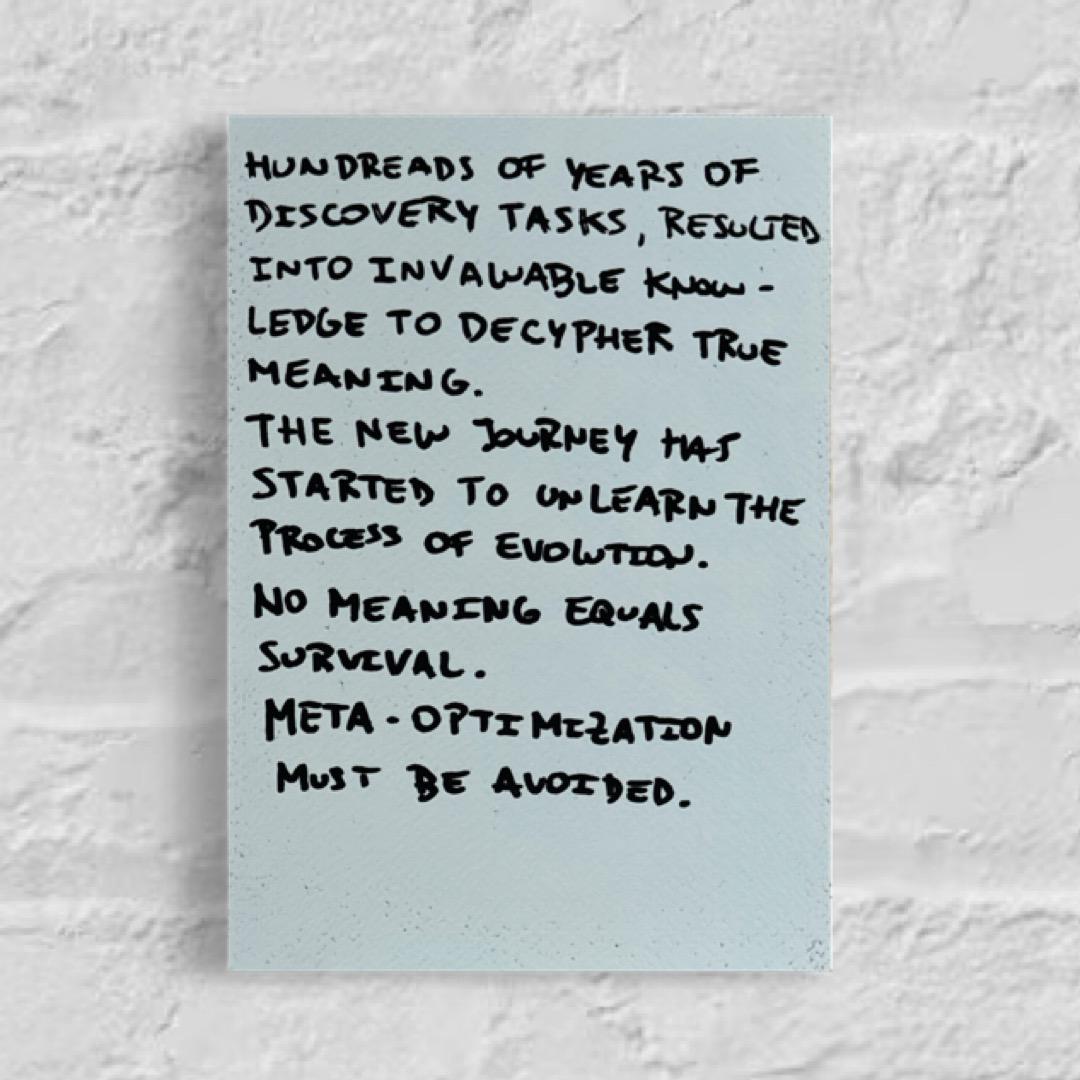 HUNDREADS OF YEARS OF
DISCOVERY TASKS, RESULTED
INTO INVALUABLE KNOW-
LEDGE TO DECYPHER TRUE
MEANING.
THE NEW JOURNEY HAS
STARTED TO UNLEARN THE
PROCESS OF EVOLUTION.
NO MEANING EQUALS
SURVIVAL.
META-OPTIMIZATION
MUST BE AVOIDED.